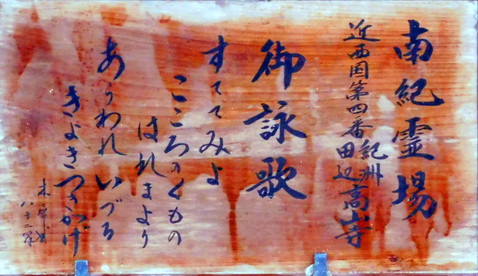 南紀霊場
近西国第四番
紀洲
田辺
高山寺
御詠歌
すててみよ
こころのくもの
はれまより
あらわれいづる
きよきつきかげ